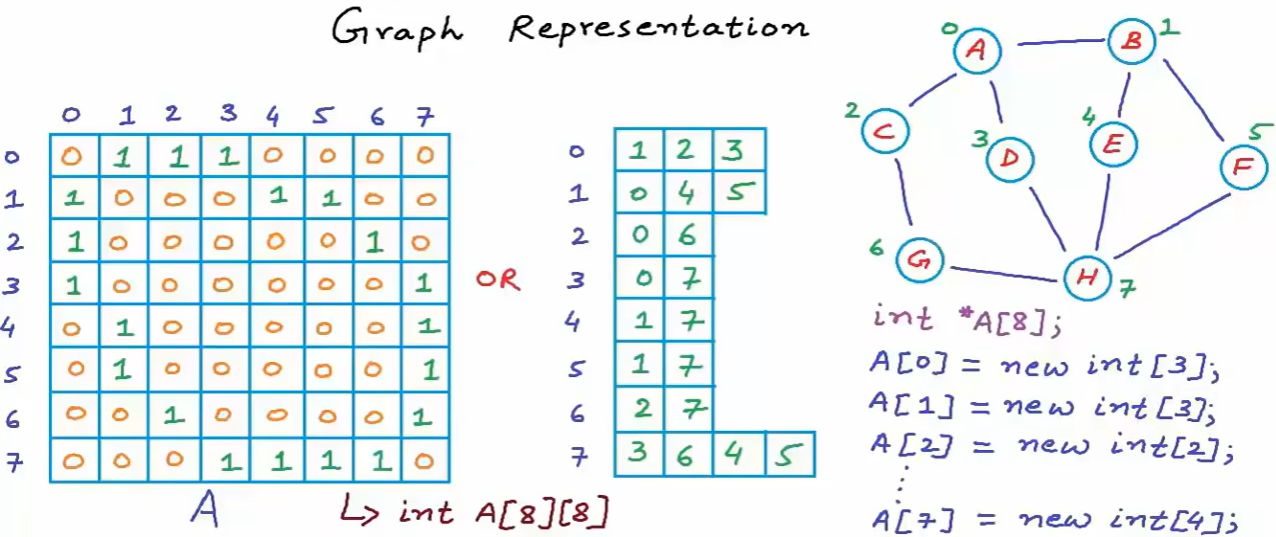 Graph Representation
0 1 2 3 4 5 6 7
0 0 1 1 1 0 0 0 0
1 1 0 0 0 1 1 0 0
2 1 0 0 0 0 0 1 0
3 1 0 0 0 0 0 0 1
4 0 1 0 0 0 0 0 1
5 0 1 0 0 0 0 0 1
6 0 0 1 0 0 0 0 1
7 0 0 0 1 1 1 1 0
A
↳ int A[8][8]
OR
0 1 2 3
1 0 4 5
2 0 6
3 0 7
4 1 7
5 1 7
6 2 7
7 3 6 4 5
0 A
B 1
2 C
3 D
4 E
5 F
6 G
H 7
int *A[8];
A[0] = new int[3];
A[1] = new int[3];
A[2] = new int[2];
⋮
A[7] = new int[4];